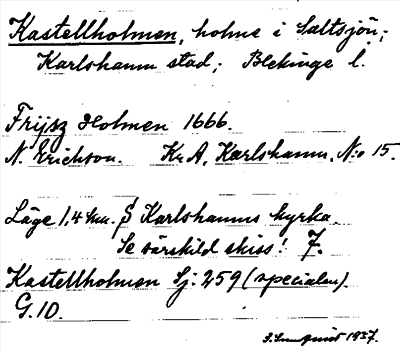 Kastellholmen, holme i Saltsjön;
Karlshamn stad; Blekinge l.
Frijsz Holmen 1666.
N. Erichson. KrA, Karlshamn, N:o 15.
Läge 1,4 km. S Karlshamns kyrka.
Se särskild skiss! 7.
Kastellholmen Sj: 259 (specialen).
G.10.
1937.